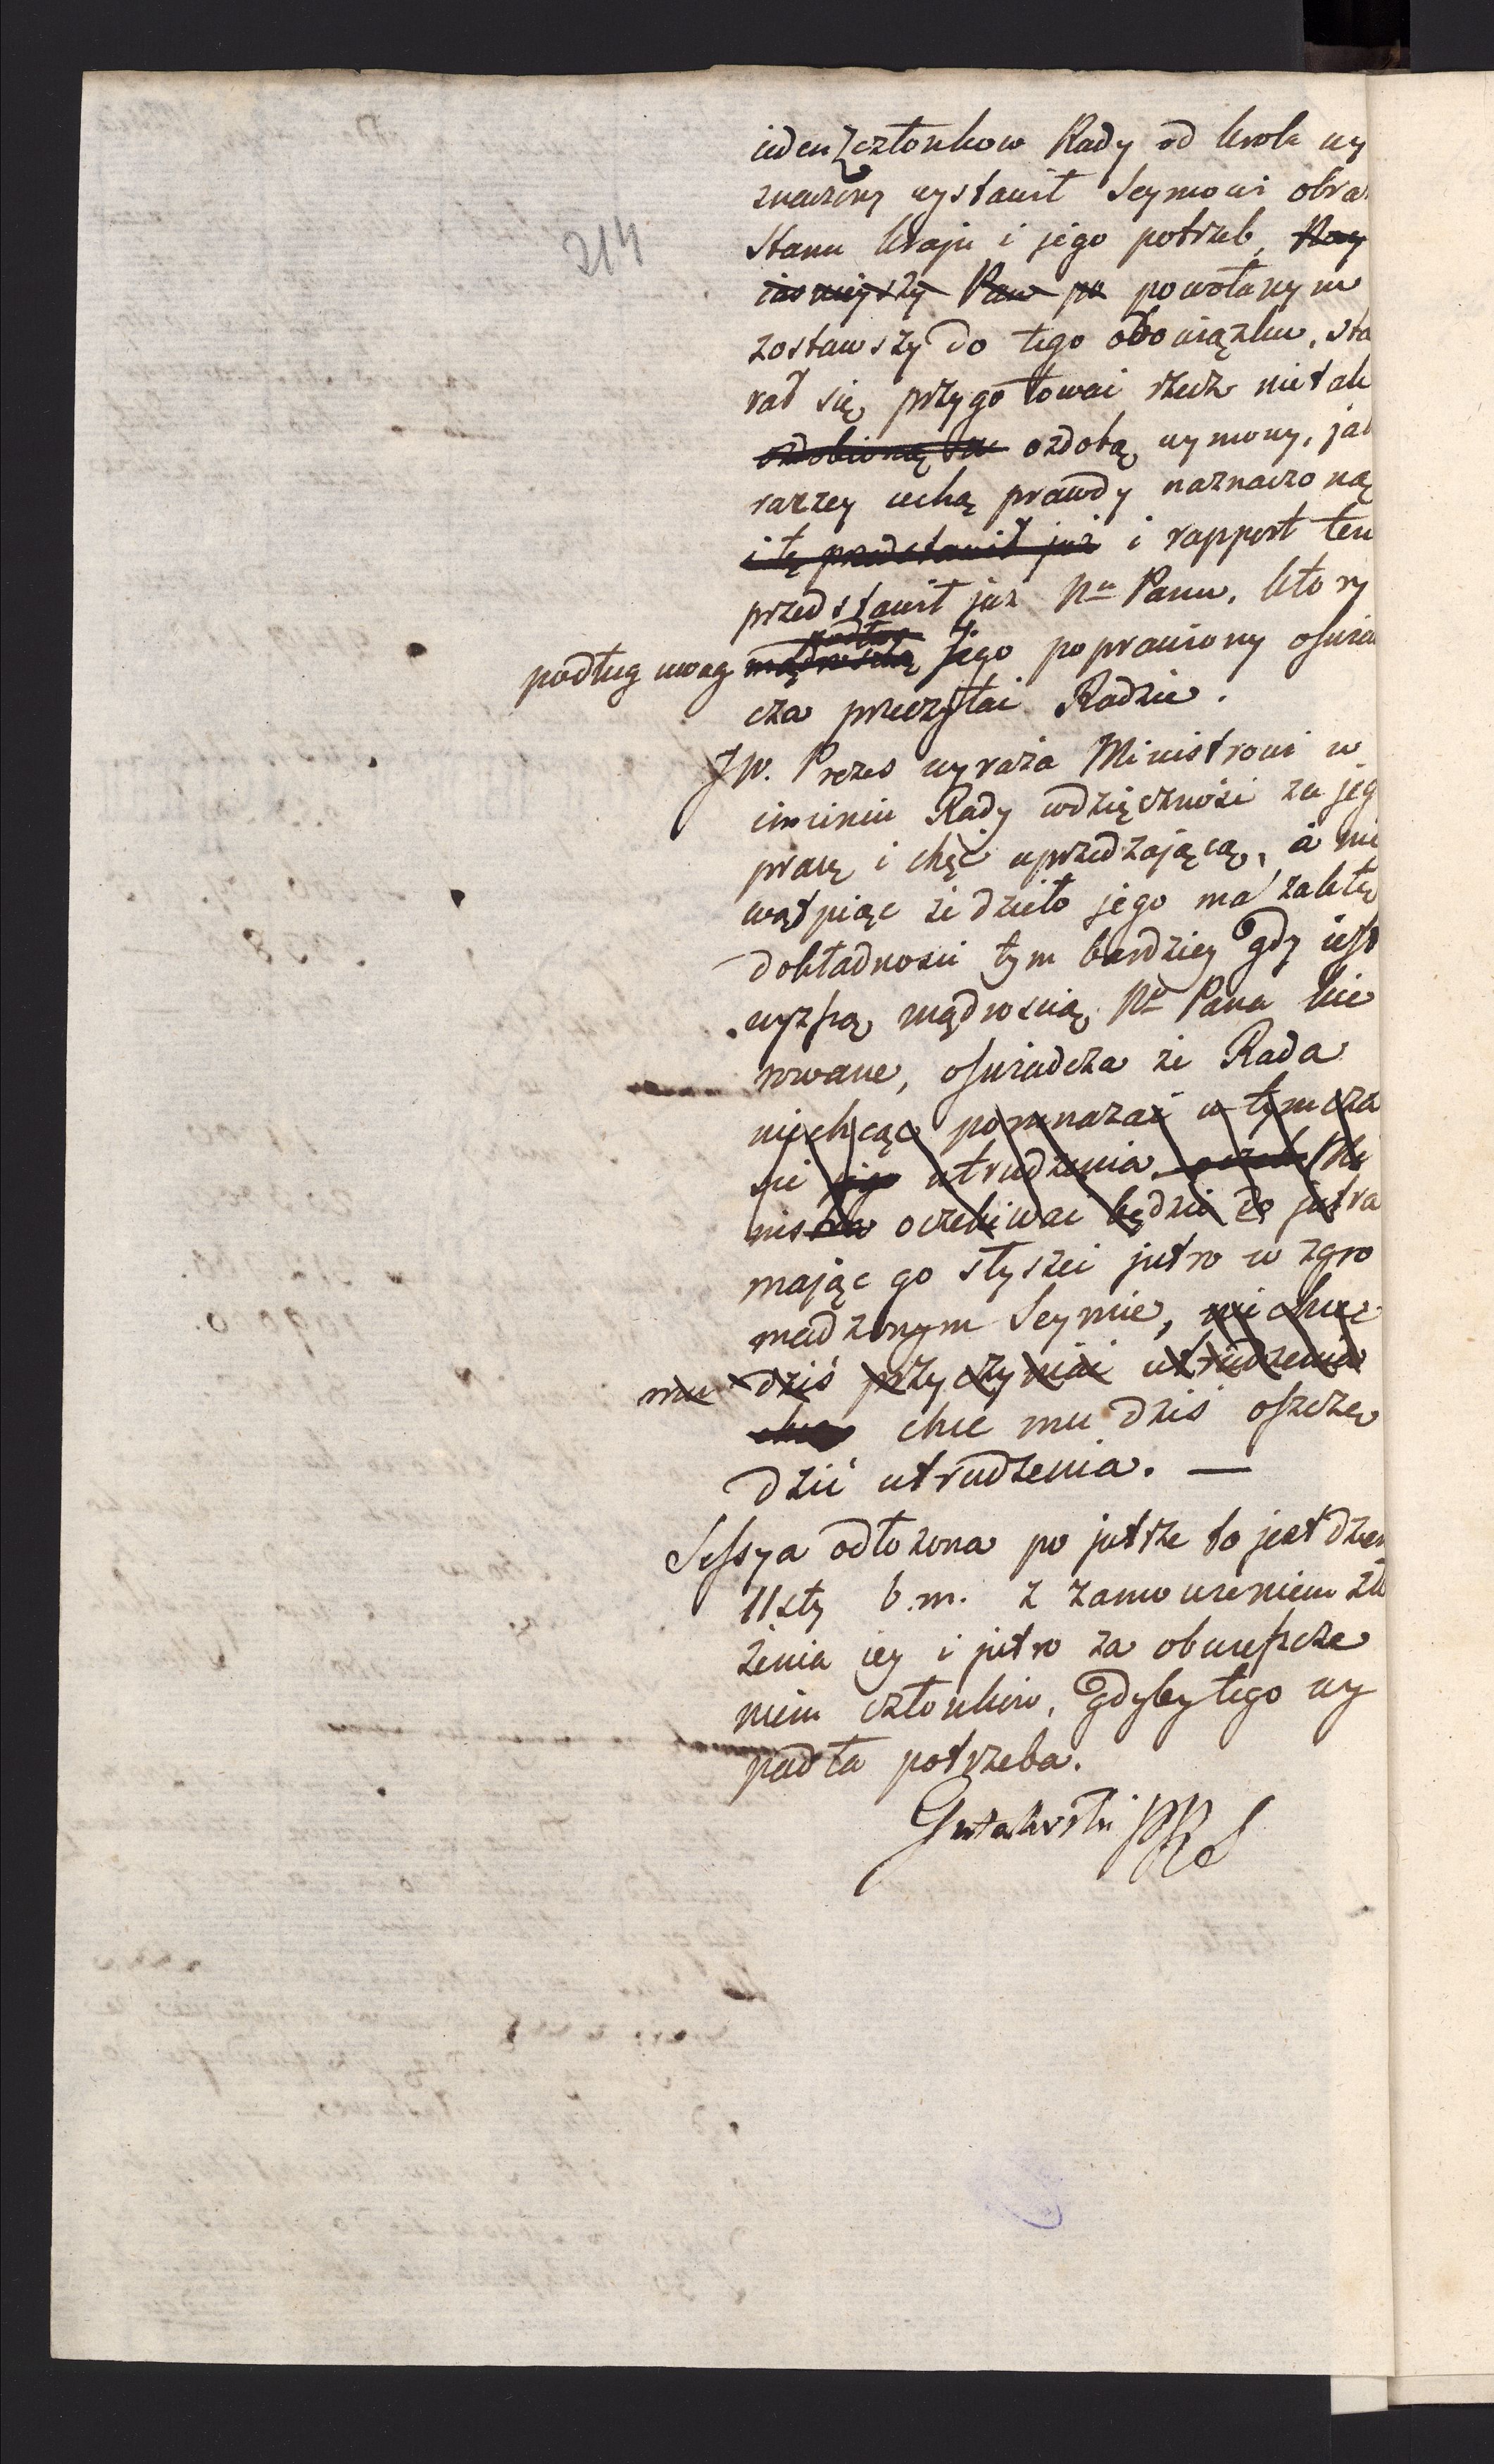 214
ieden z członkow Rady od krola wy
znaczony wystawił Seymowi obra
Stanu kraju i jego potrzeb, Nay
iasnieyszy Pan po powołanym
zostawszy do tego obowiązku, sta
rał się przygotować rzecz nie tak
ozdobioną ozdobą wymowy, jak
raczey cechą prawdy naznaczoną
i tę przedstawił już i rapport ten
przedstawił już Nu Panu, ktory
podług
podług uwag mądroscią Jego poprawiony oswiad
cza przeczytać Radzie.
JW. Prezes wyraża Ministrowi w
imieniu Rady wdzięczność za jeg
pracę i chęć uprzedzającą, a nie
wątpiąc że dzieło jego ma zaletę
dokładności tym bardziey gdy iest
wyższą mądroscią Na Pana kie
rowane, oświadcza że Rada
niechcąc pomnażać w tym cza
sie jego utrudzenia Mi
nistra oczekiwać będzie do jutra
mając go słyszeć jutro w zgro
madzonym Seymie, nie chce
mu dziś przyczyniać utrudzenia
chcąc chce mu dziś oszczę
dzić utrudzenia. —
Sessya odłożona po jutrze to jest dzień
11sty b.m. z zamowieniem zło
żenia iey i jutro za obwieszcze
niem członków, gdyby tego wy
padła potrzeba.
Gutakowski PRS